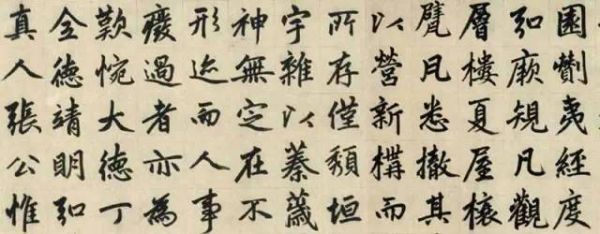 園剸夷經度
弘厰規凡觀
層樓夏屋榱
甓凡悉撤其
以營新構而
所存僅頹垣
宇雜以蓁薉
神無定在不
形迹而人事
癈過者亦為
歎惋大德丁
全德靖明弘
真人張公惟